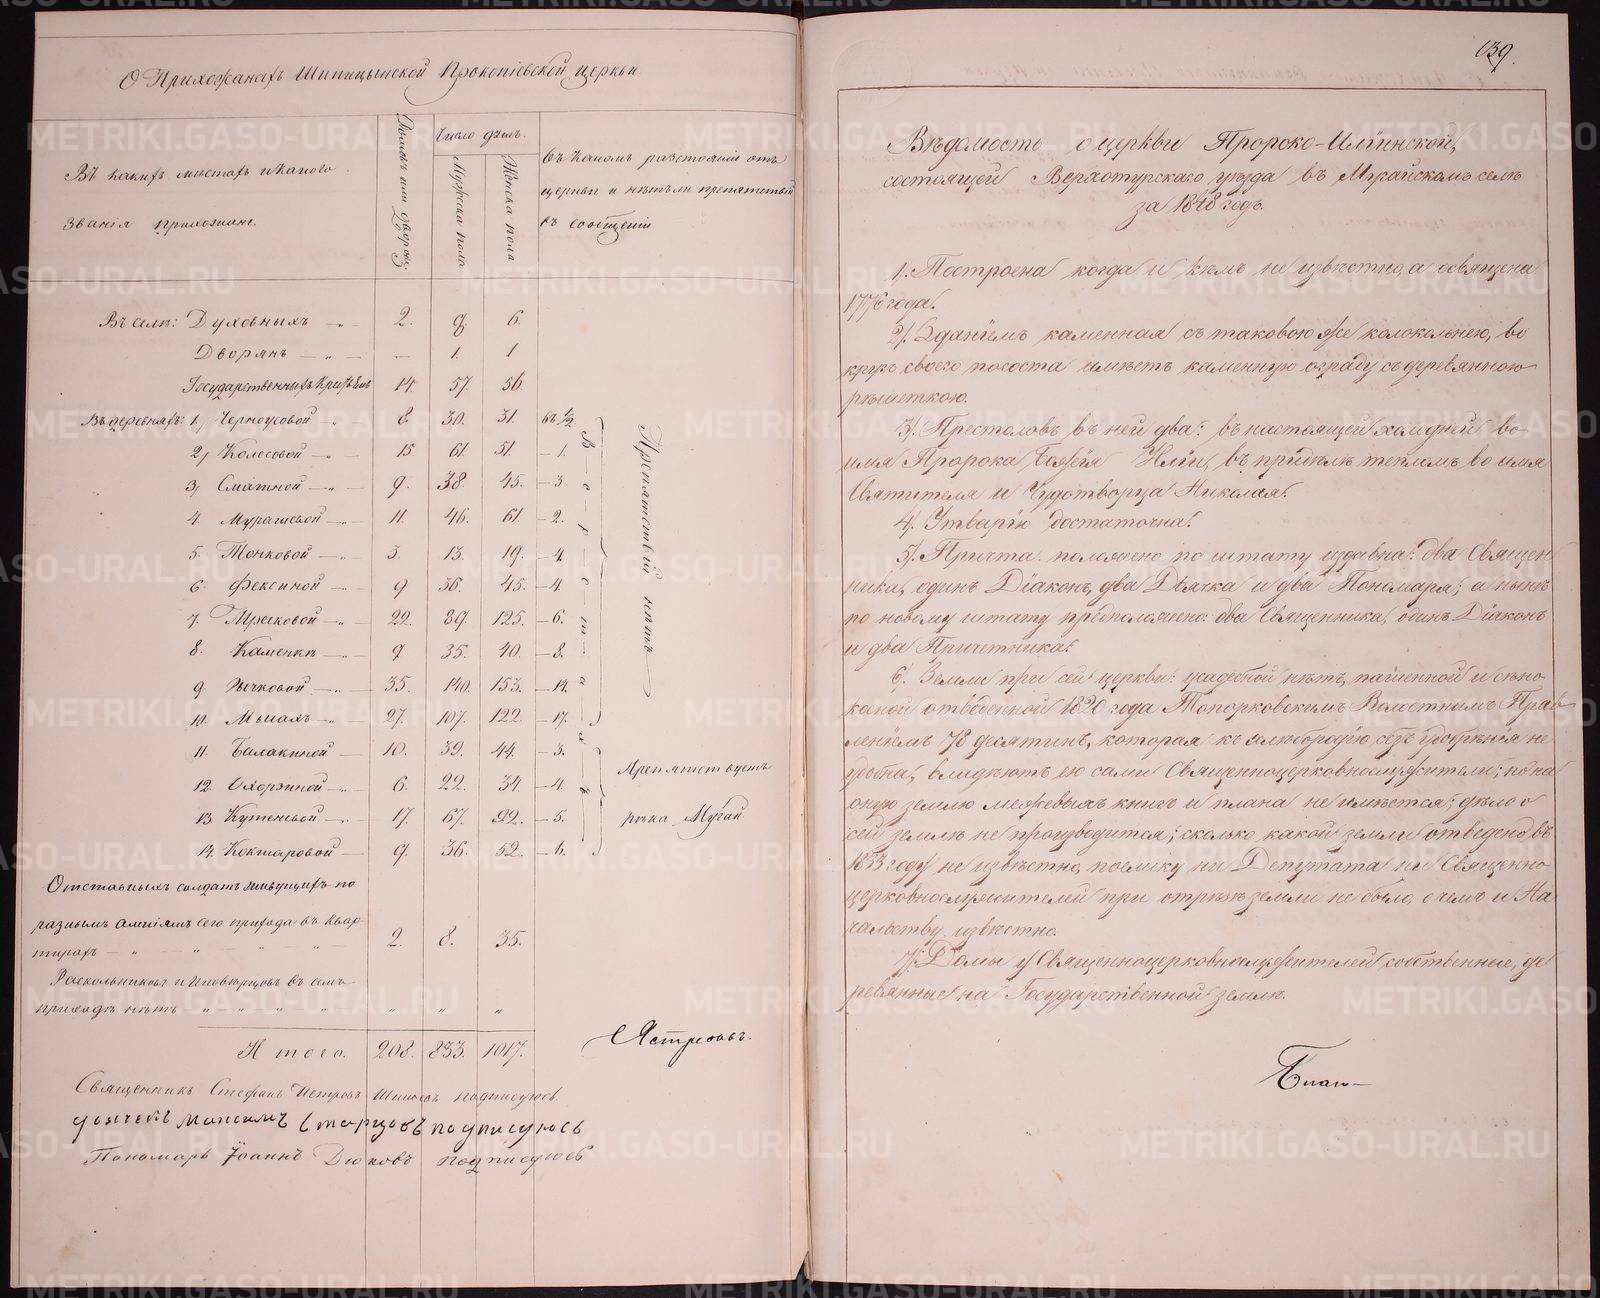 О Прихожанахъ Шипицынской Прокопіевской церкви
Въ какихъ мѣстахъ и какого
званія прихожане.
Домовъ или дворовъ
Число душъ.
Мужеска пола
Женска пола
въ какомъ разстояніи отъ
церкви и нѣтъ ли препятствій
въ сообщеніи
Въ селѣ: Духовныхъ — 2. 8 6.
Дворянъ — — 1. 1
Государственныхъ Крестьянъ 14. 57. 56.
Въ деревняхъ: 1, Черноусовой — 8. 30. 31. въ 1/2
2, Колесовой — 15 61. 51. — 1.
3, — 9. 38. 45. — 3
4. — 11. 46. 61. — 2.
5. Тонковой — 3. 13. 19. — 4.
6. Фексиной — 9 36. 45. — 4.
7. — 22. 89. 125. — 6.
8. Каменкѣ — 9 35. 40. — 8.
9. Рычковой — 35. 140. 153. — 14.
10. Мысахъ — 27. 107. 122. — 17.
11. Балакиной — 10. 39. 44. — 3.
12. Охорзиной — 6. 22. 34. — 4.
13. — 17. 67. 92. — 5.
14. Кокшаровой — 9. 36. 52. — 6.
В е р с т а х ъ
Препятствій нѣтъ
Препятствуетъ
рѣка Мугай
Отставныхъ солдатъ живущихъ по
разнымъ сего прихода въ квар-
тирахъ — 2. 8. 35.
Раскольниковъ и Иновѣрцовъ въ семъ
приходѣ нѣтъ — „ „ „
Итого. 208. 833. 1017.
Священникъ Стефанъ Петровъ подписуюсь.
дьячекъ Максимъ Старцовъ подписуюсь
Пономарь Іоаннъ Дюковъ подписуюсь
139.
Вѣдомость о церкви Пророко-Ильинской,
состоящей Верхотурскаго уѣзда въ Мугайскомъ селѣ
за 1848 годъ.
1. Построена когда и кѣмъ не извѣстно, а освящена
1776 года.
2. Зданіемъ каменная съ таковою же колокольнею, во
кругъ своего погоста имѣетъ каменную ограду съ деревянною
рѣшеткою.
3. Престоловъ въ ней два: въ настоящей холодной во
имя Пророка Божія Иліи, въ придѣлѣ тепломъ во имя
Святителя и Чудотворца Николая.
4. Утварію достаточна.
5. Причта положено по штату издавна: два Священ-
ника, одинъ Діаконъ, два Дьячка и два Пономаря; а нынѣ
по новому штату предположено: два Священника, одинъ Діаконъ
и два Причетника.
6. Земли при сей церкви: усадебной нѣтъ, пашенной и сѣно-
косной отведенной 1820 года Топорковскимъ Волостнымъ Прав-
леніемъ 78 десятинъ, которая къ хлѣбородію безъ удобренія не
удобна, владѣютъ ею сами Священноцерковнослужители; но на
оную землю межевыхъ книгъ и плана не имѣется; дѣло о
сей землѣ не производится; сколько какой земли отведено въ
1833 году не извѣстно, поелику ни Депутата ни Священно-
церковнослужителей при отрѣзѣ земли не было, о чемъ и На-
чальству извѣстно.
7. Домы у Священноцерковнослужителей собственные, де-
ревянные на Государственной землѣ.